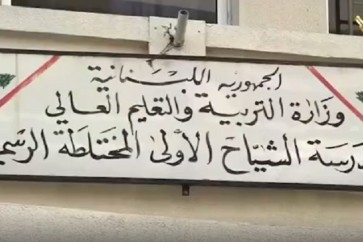 الجمهورية اللبنانية
وزارة التربية والتعليم العالي
درسة الشياح الاولى المختلطة الرسم